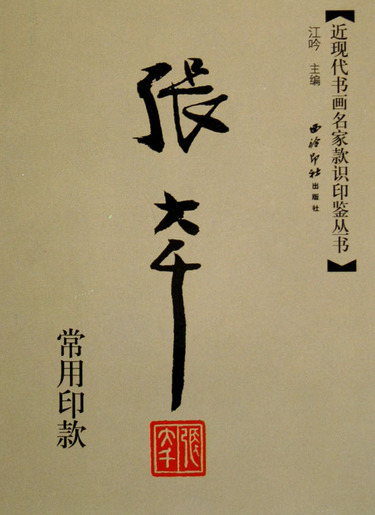 【近现代书画名家款识印鉴丛书】
江吟 主编
西泠印社出版社
張大千
常用印款
張大千